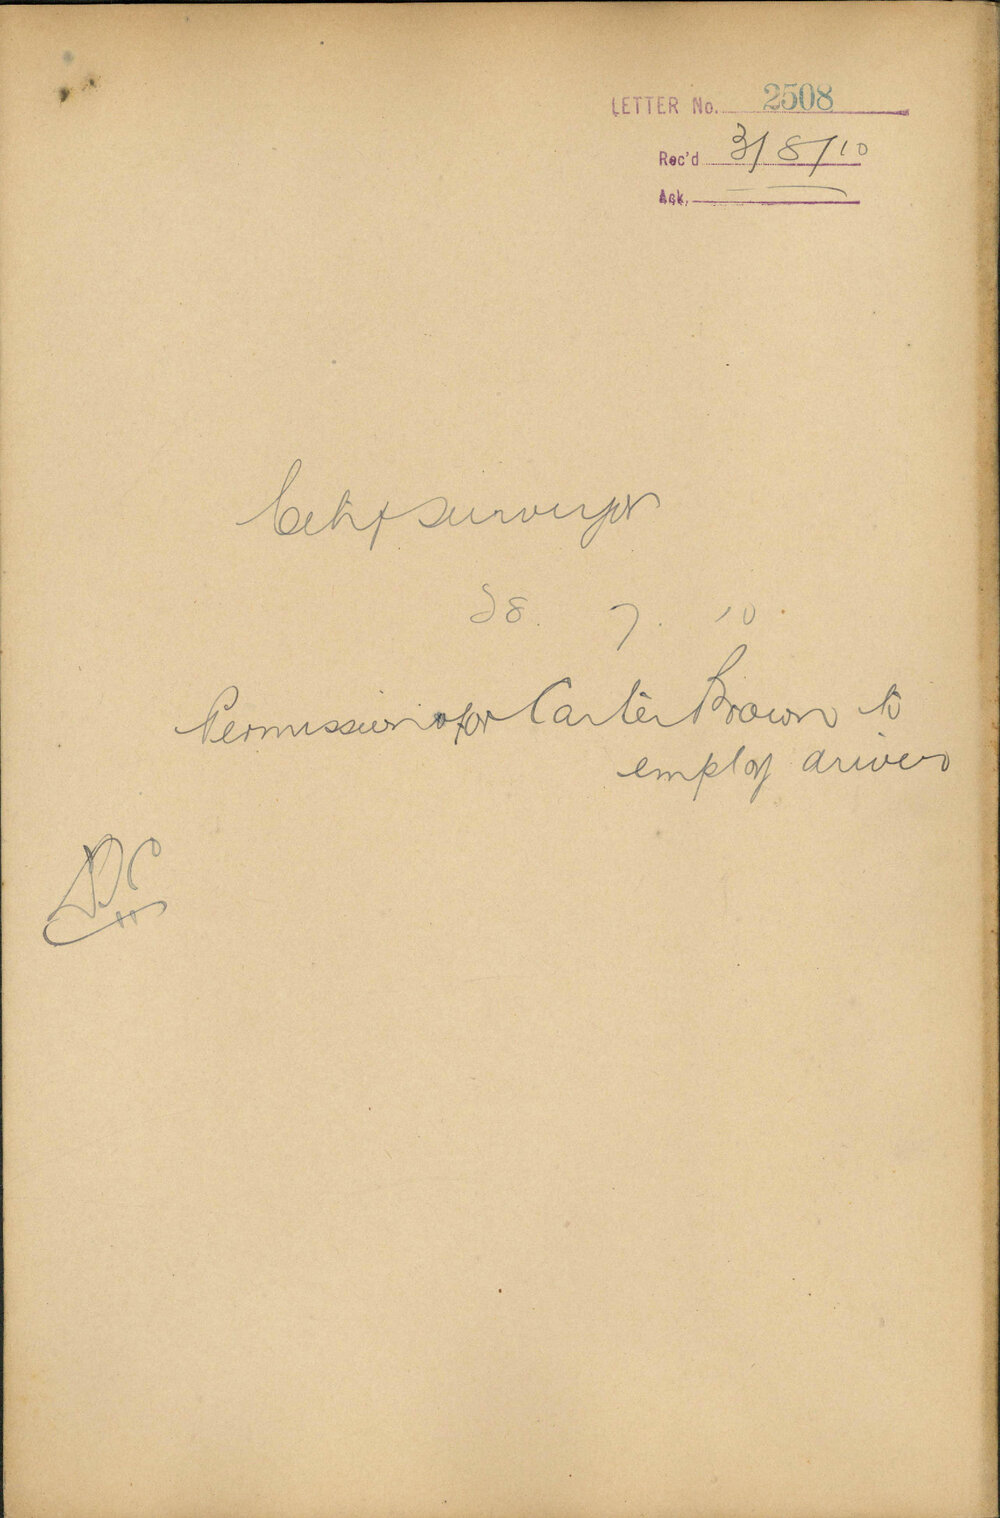 LETTER No. 2508
Rec'd 3/8/10
Ack.
City Surveyor
28. 7. 10.
Permission for Carter Brown to
employ driver